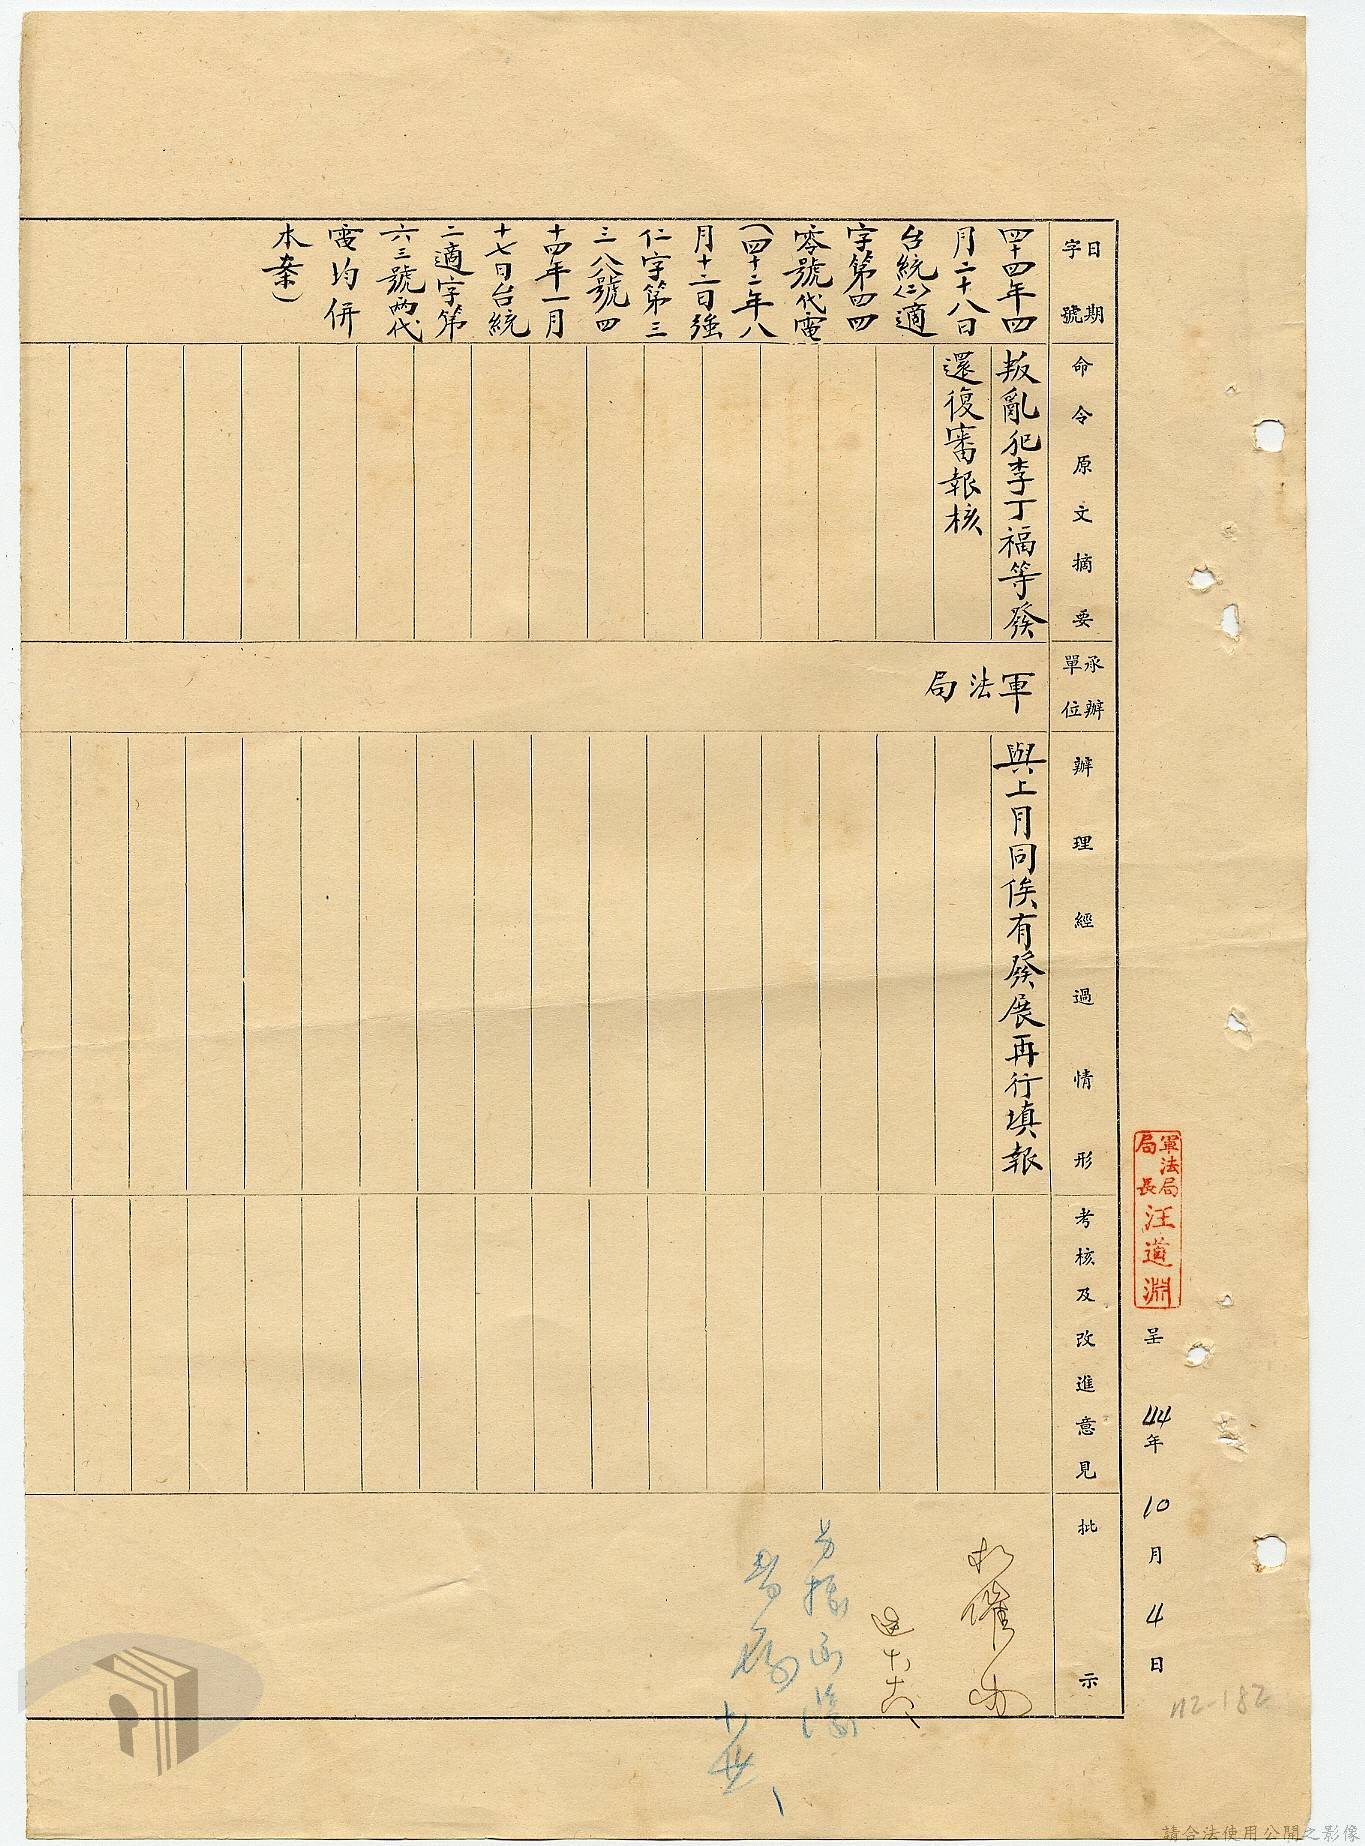 軍法局
局長
汪道淵
呈
44年10月4日
日期
字號
命令原文摘要
承辦
單位
辦理經過情形
考核及改進意見
批示
四十四年四
月二十八日
台統(二)適
字第四四
零號代電
(四十二年八
月十二日強
仁字第三
三八號四
十四年一月
十七日台統
二適字第
六三號兩代
電均併
本案)
叛亂犯李丁福等發
還復審報核
軍法局
與上月同俟有發展再行填報
112-182
請合法使用公開之影像